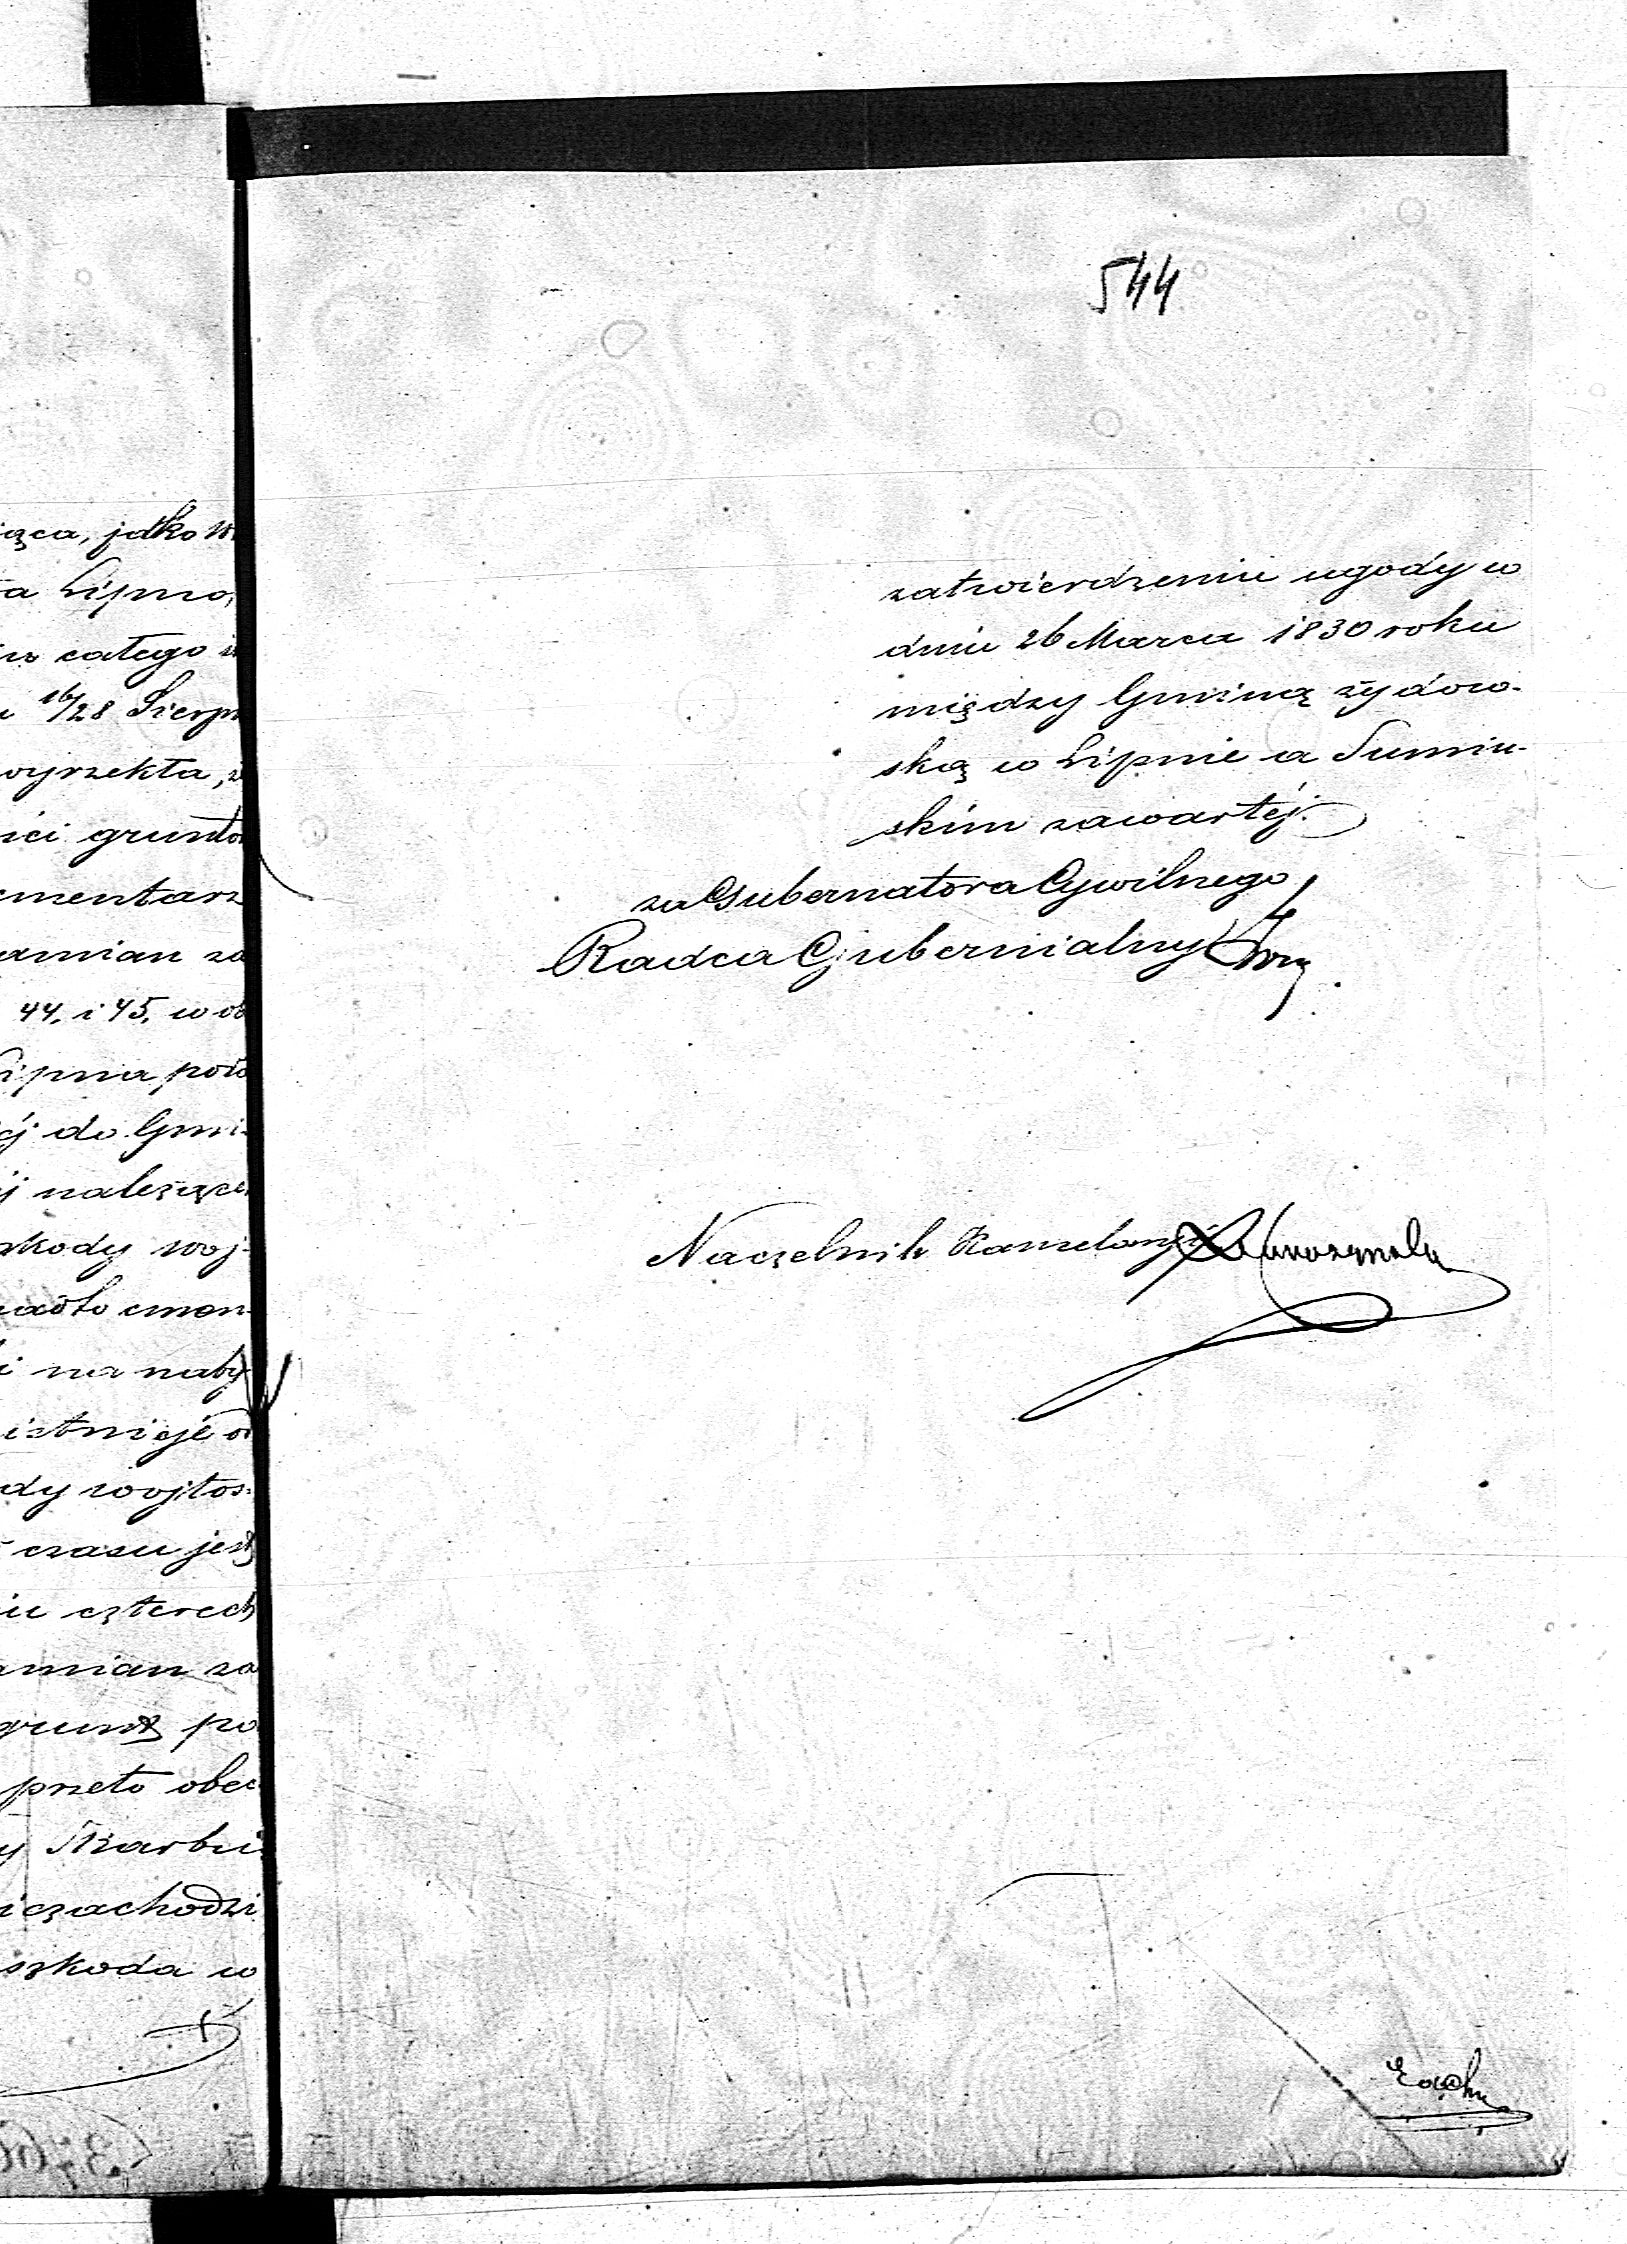 iąca, jako w
a Lipno,
w całego i
16/28 Sierpn
wyrzekła, ż
ici grunto
cmentarz
amian za
44, i 45, w ob
Lipna poło
éj do Gmi-
j należące
szkody woj-
cmen-
i na naby-
istnieje o
dy wojtos-
czasu jest
iu czterech
amian za
grunt po
przeto obec
y Skarbu
zachodzi
szkoda w
544
zatwierdzeniu ugody w
dniu 26 Marca 1830 roku
między Gminą żydow-
ską w Lipnie a Sumiń-
skim zawartéj.
za Gubernatora Cywilnego
Radca Gubernialny
Naczelnik Kancelaryi